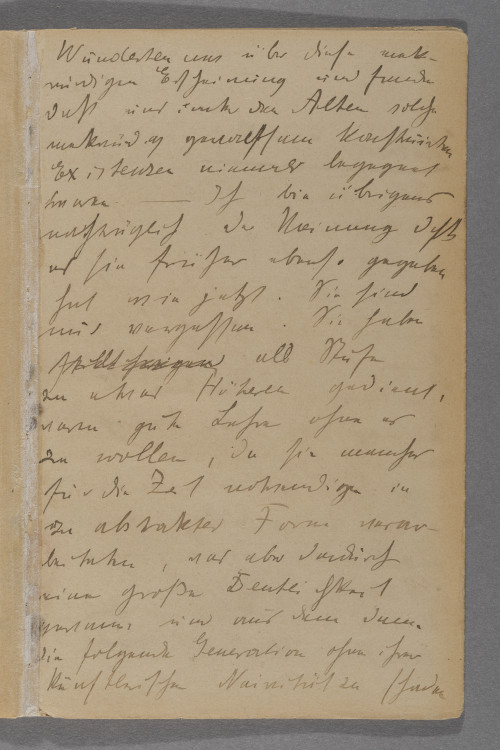 Wunderten uns über diese merk-
würdigen Erscheinung und fanden
dass uns unter den Alten solche
merkwürdig gewaltsam konstruirten
Existenzen niemals begegnet
waren. — Ich bin übrigens
nachträglich der Meinung dass
es sie früher ebenso gegeben
hat wie jetzt. Sie sind
nur vergessen. Sie haben
als Stufe
zu etwas Höherem gedient,
waren gute Lehre ohne es
zu wollen, da sie manches
für die Zeit notwendige in
zu abstrakter Form verar-
beiteten, was aber dadurch
eine große Deutlichkeit
gewann und aus dem dann
die folgende Generation ohne ihrer
künstlerischen Naivität zu schaden